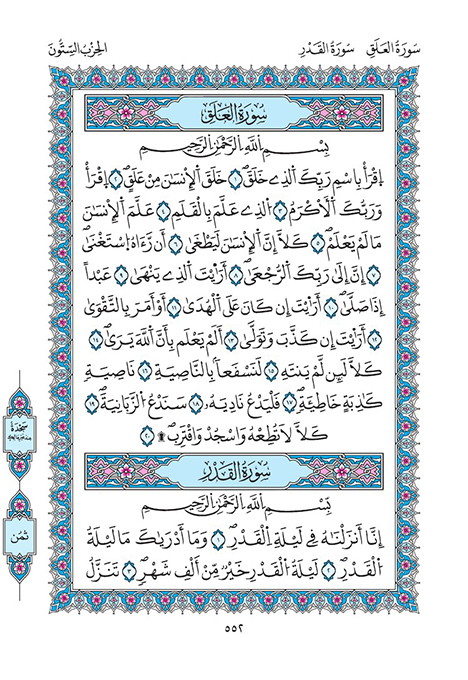 سُورَةُ العَلَقِ سُورَةُ القَدْرِ
الحِزْبُ السِّتُّونَ
سُورَةُ العَلَقِ
بِسْمِ اِللَّهِ اِلرَّحْمَٰنِ اِلرَّحِيمِ
اِقْرَأْ بِاسْمِ رَبِّكَ اَلذِے خَلَقَۖ ١ خَلَقَ اَلْإِنسَٰنَ مِنْ عَلَقٍۖ ٢ اِقْرَأْ
وَرَبُّكَ اَلْأَكْرَمُ ٣ اُلذِے عَلَّمَ بِالْقَلَمِ ٤ عَلَّمَ اَلْإِنسَٰنَ
مَا لَمْ يَعْلَمْۖ ٥ كَلَّآ إِنَّ اَلْإِنسَٰنَ لَيَطْغَىٰٓ ٦ أَن رَّءَاهُ اُسْتَغْنَىٰٓۖ
٧ إِنَّ إِلَىٰ رَبِّكَ اَلرُّجْعَىٰٓۖ ٨ أَرَٰٓيْتَ اَلذِے يَنْهَىٰ ٩ عَبْداً
اِذَا صَلَّىٰٓۖ ١٠ أَرَٰٓيْتَ إِن كَانَ عَلَى اَلْهُدَىٰٓ ١١ أَوَ اَمَرَ بِالتَّقْوَىٰٓۖ
١٢ أَرَٰٓيْتَ إِن كَذَّبَ وَتَوَلَّىٰٓۖ ١٣ أَلَمْ يَعْلَم بِأَنَّ اَللَّهَ يَرَىٰۖ ١٤
كَلَّا لَئِن لَّمْ يَنتَهِ ١٥ لَنَسْفَعاَۢ بِالنَّاصِيَةِ ١٦ نَاصِيَةٖ
كَٰذِبَةٍ خَاطِئَةٖۖ ١٧ فَلْيَدْعُ نَادِيَهُۥ ١٨ سَنَدْعُ اُلزَّبَانِيَةَۖ ١٩
كَلَّا لَا تُطِعْهُ وَاسْجُدْ وَاقْتَرِب۩ۖ ٢٠
سَجْدَة
سُورَةُ القَدْرِ
بِسْمِ اِللَّهِ اِلرَّحْمَٰنِ اِلرَّحِيمِ
ثمن
إِنَّآ أَنزَلْنَٰهُ فِے لَيْلَةِ اِلْقَدْرِۖ ١ وَمَآ أَدْرَيٰكَ مَا لَيْلَةُ
اُلْقَدْرِۖ ٢ لَيْلَةُ اُلْقَدْرِ خَيْرٞ مِّنْ أَلْفِ شَهْرٖۖ ٣ تَنَزَّلُ
٥٥٢